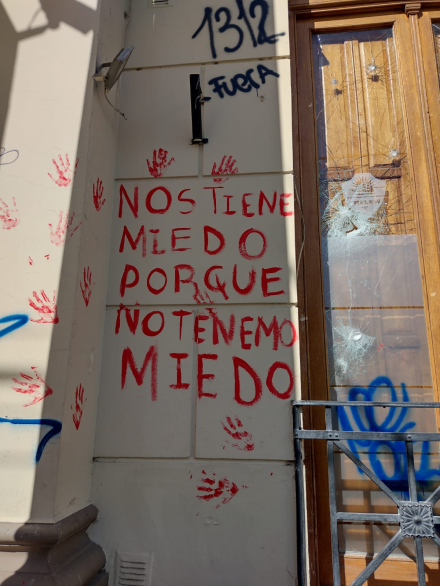 1312
FUERA
NOS TIENE
MIEDO
PORQUE
NO TENEMO
MIEDO